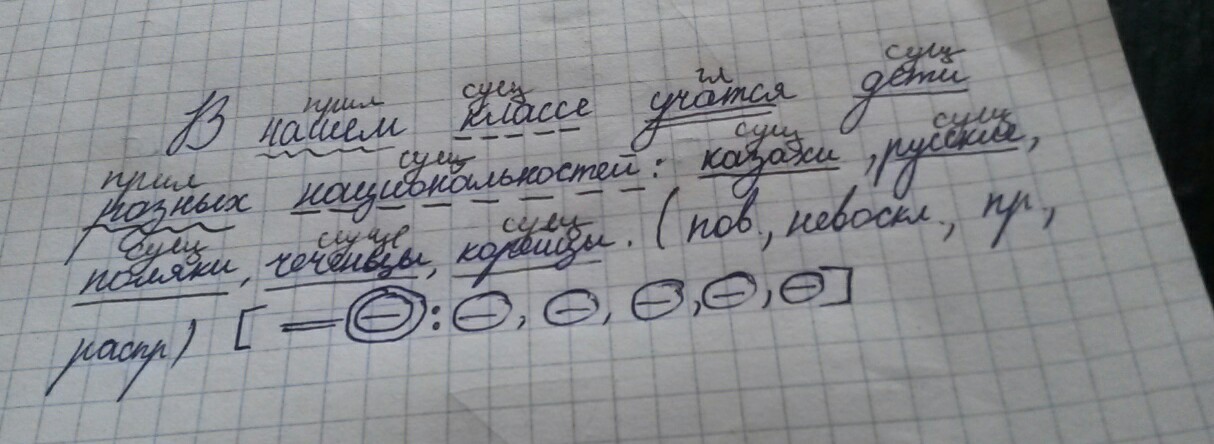 прил сущ гл сущ
В нашем классе учатся дети
прил сущ сущ сущ
разных национальностей: казахи, русские,
сущ сущ сущ
поляки, чеченцы, корейцы. (пов., невоскл., пр.,
распр) [ — — : —, —, —, —, — ]